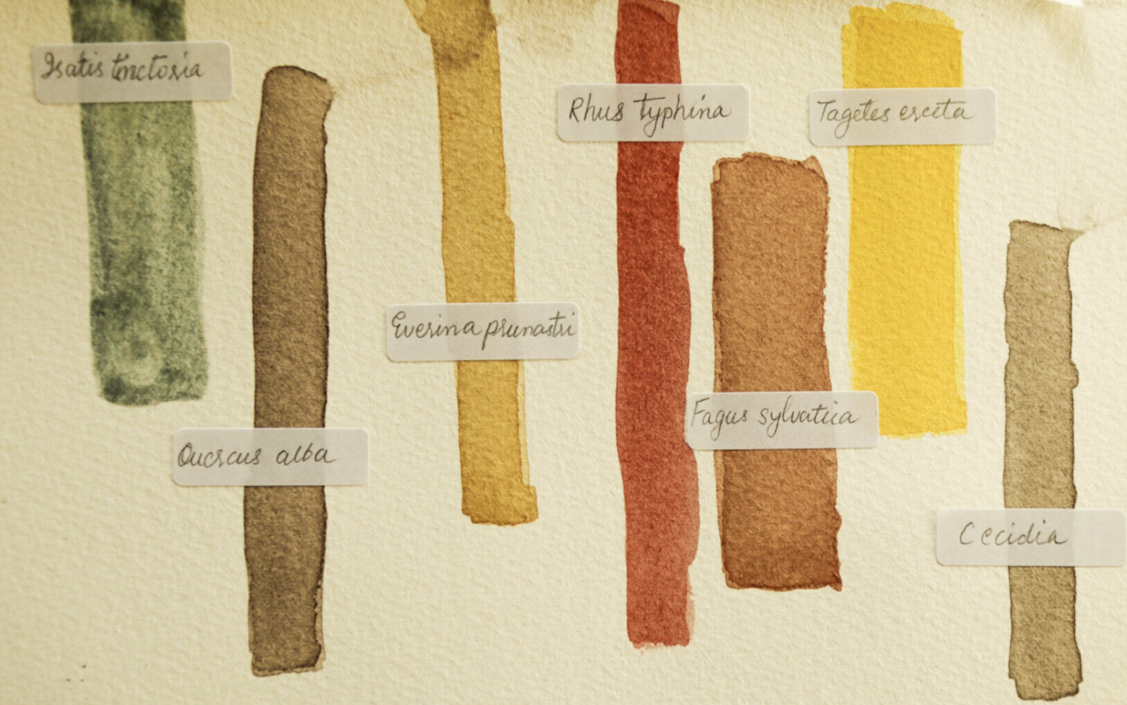 Isatis tinctoria
Rhus typhina
Tagetes erecta
Everina prunastri
Fagus sylvatica
Quercus alba
Cecidia